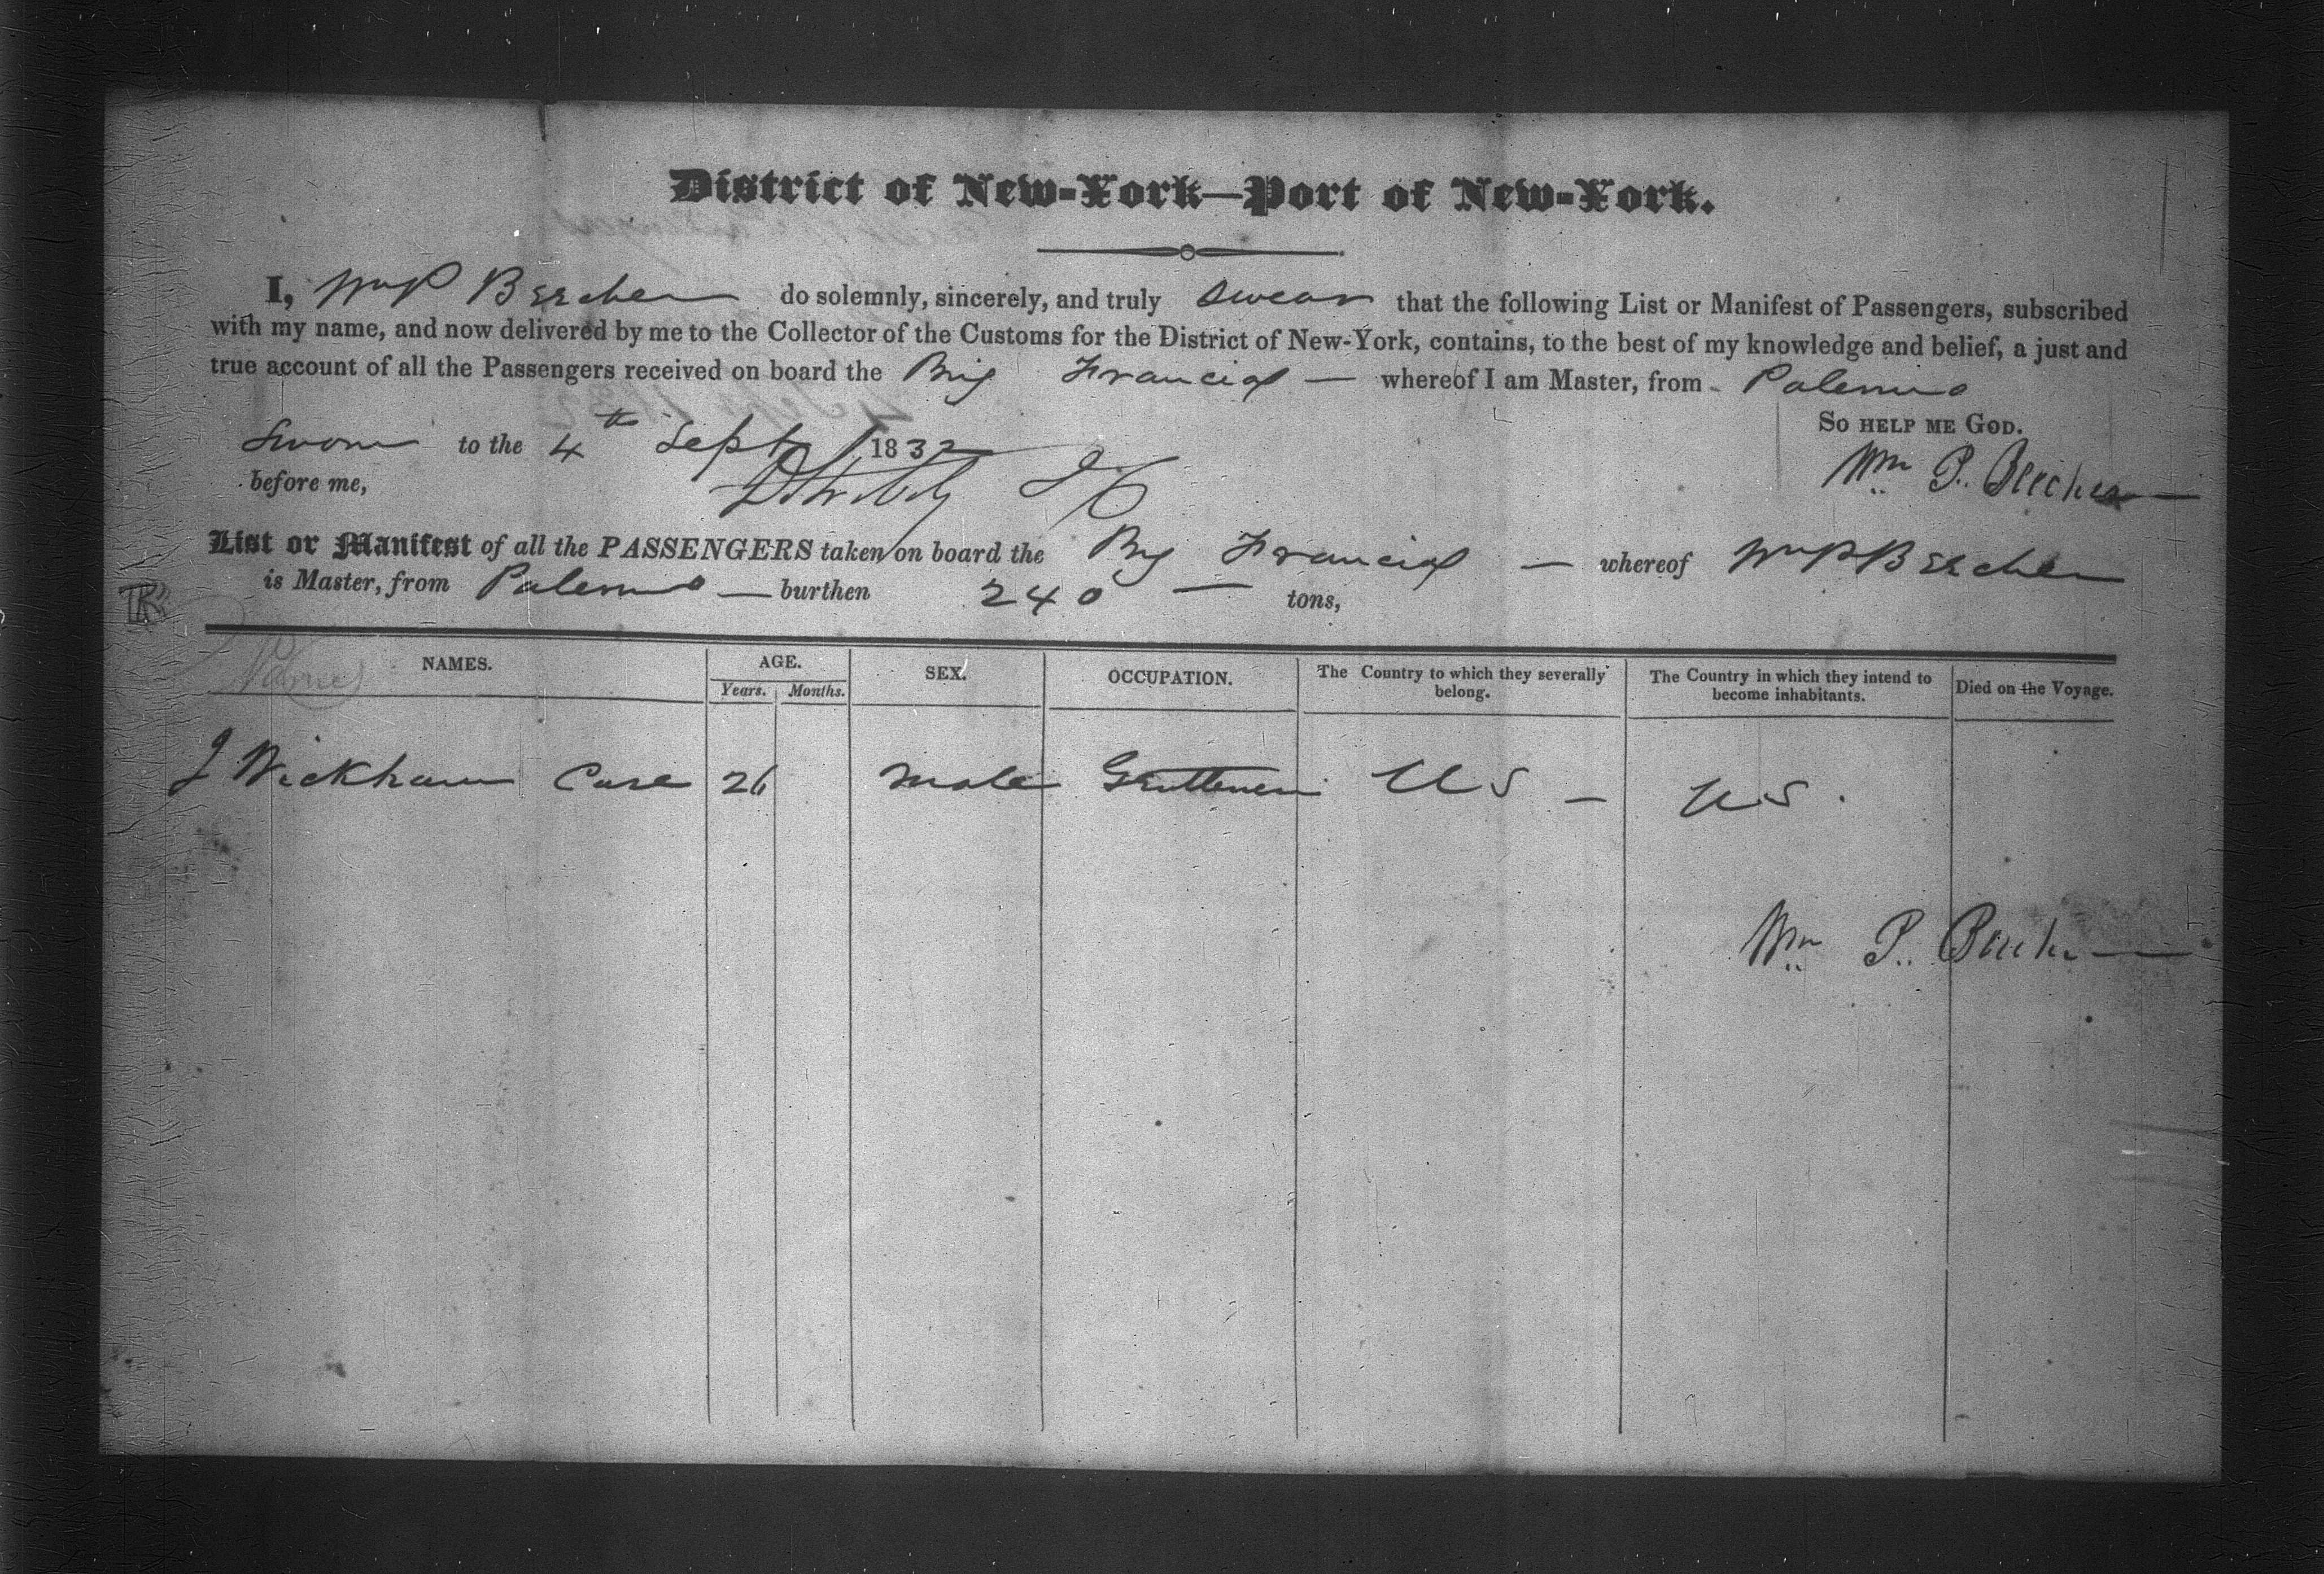 District of New-York—Port of New-York.
I, Wm P Beecher do solemnly, sincerely, and truly swear that the following List or Manifest of Passengers, subscribed
with my name, and now delivered by me to the Collector of the Customs for the District of New-York, contains, to the best of my knowledge and belief, a just and
true account of all the Passengers received on board the Brig Francis — whereof I am Master, from Palermo
So help me God.
Sworn to the 4th Sept 1832
before me,
Wm P. Beecher
List or Manifest of all the PASSENGERS taken on board the Brig Francis — whereof Wm P Beecher
is Master, from Palermo — burthen 240 — tons,
NAMES. AGE. SEX. OCCUPATION. The Country to which they severally belong. The Country in which they intend to become inhabitants. Died on the Voyage.
Years. Months.
J Wickham Case 26 male Gentleman US — US.
Wm P. Beecher